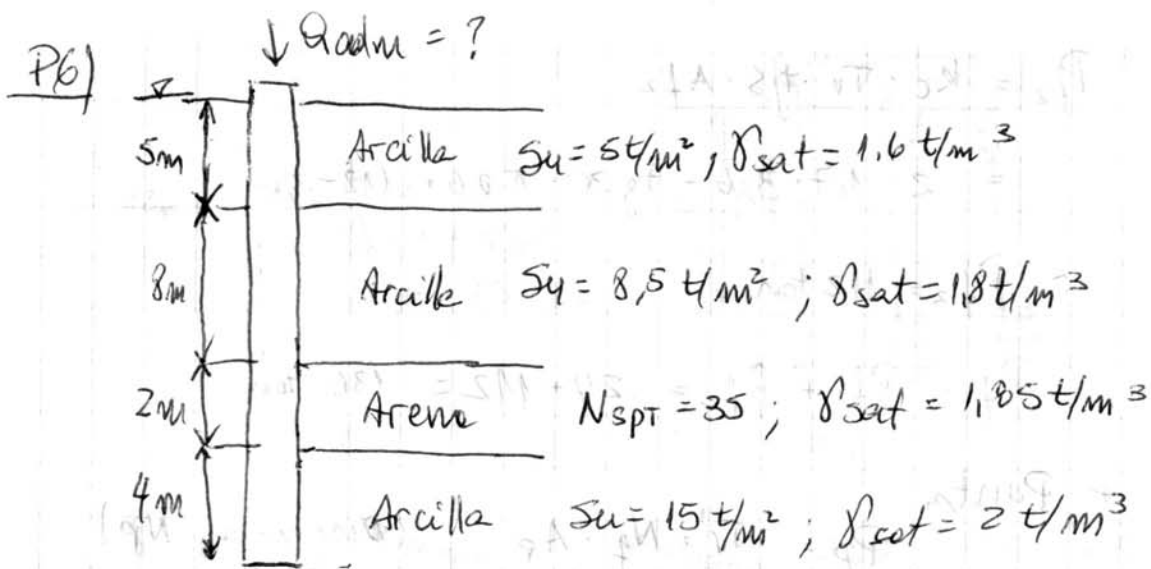 ↓ Qadm = ?
P6)
5m Arcilla Su = 5 t/m² ; γsat = 1.6 t/m³
8m Arcilla Su = 8,5 t/m² ; γsat = 1,8 t/m³
2m Arena NSPT = 35 ; γsat = 1,85 t/m³
4m Arcilla Su = 15 t/m² ; γsat = 2 t/m³